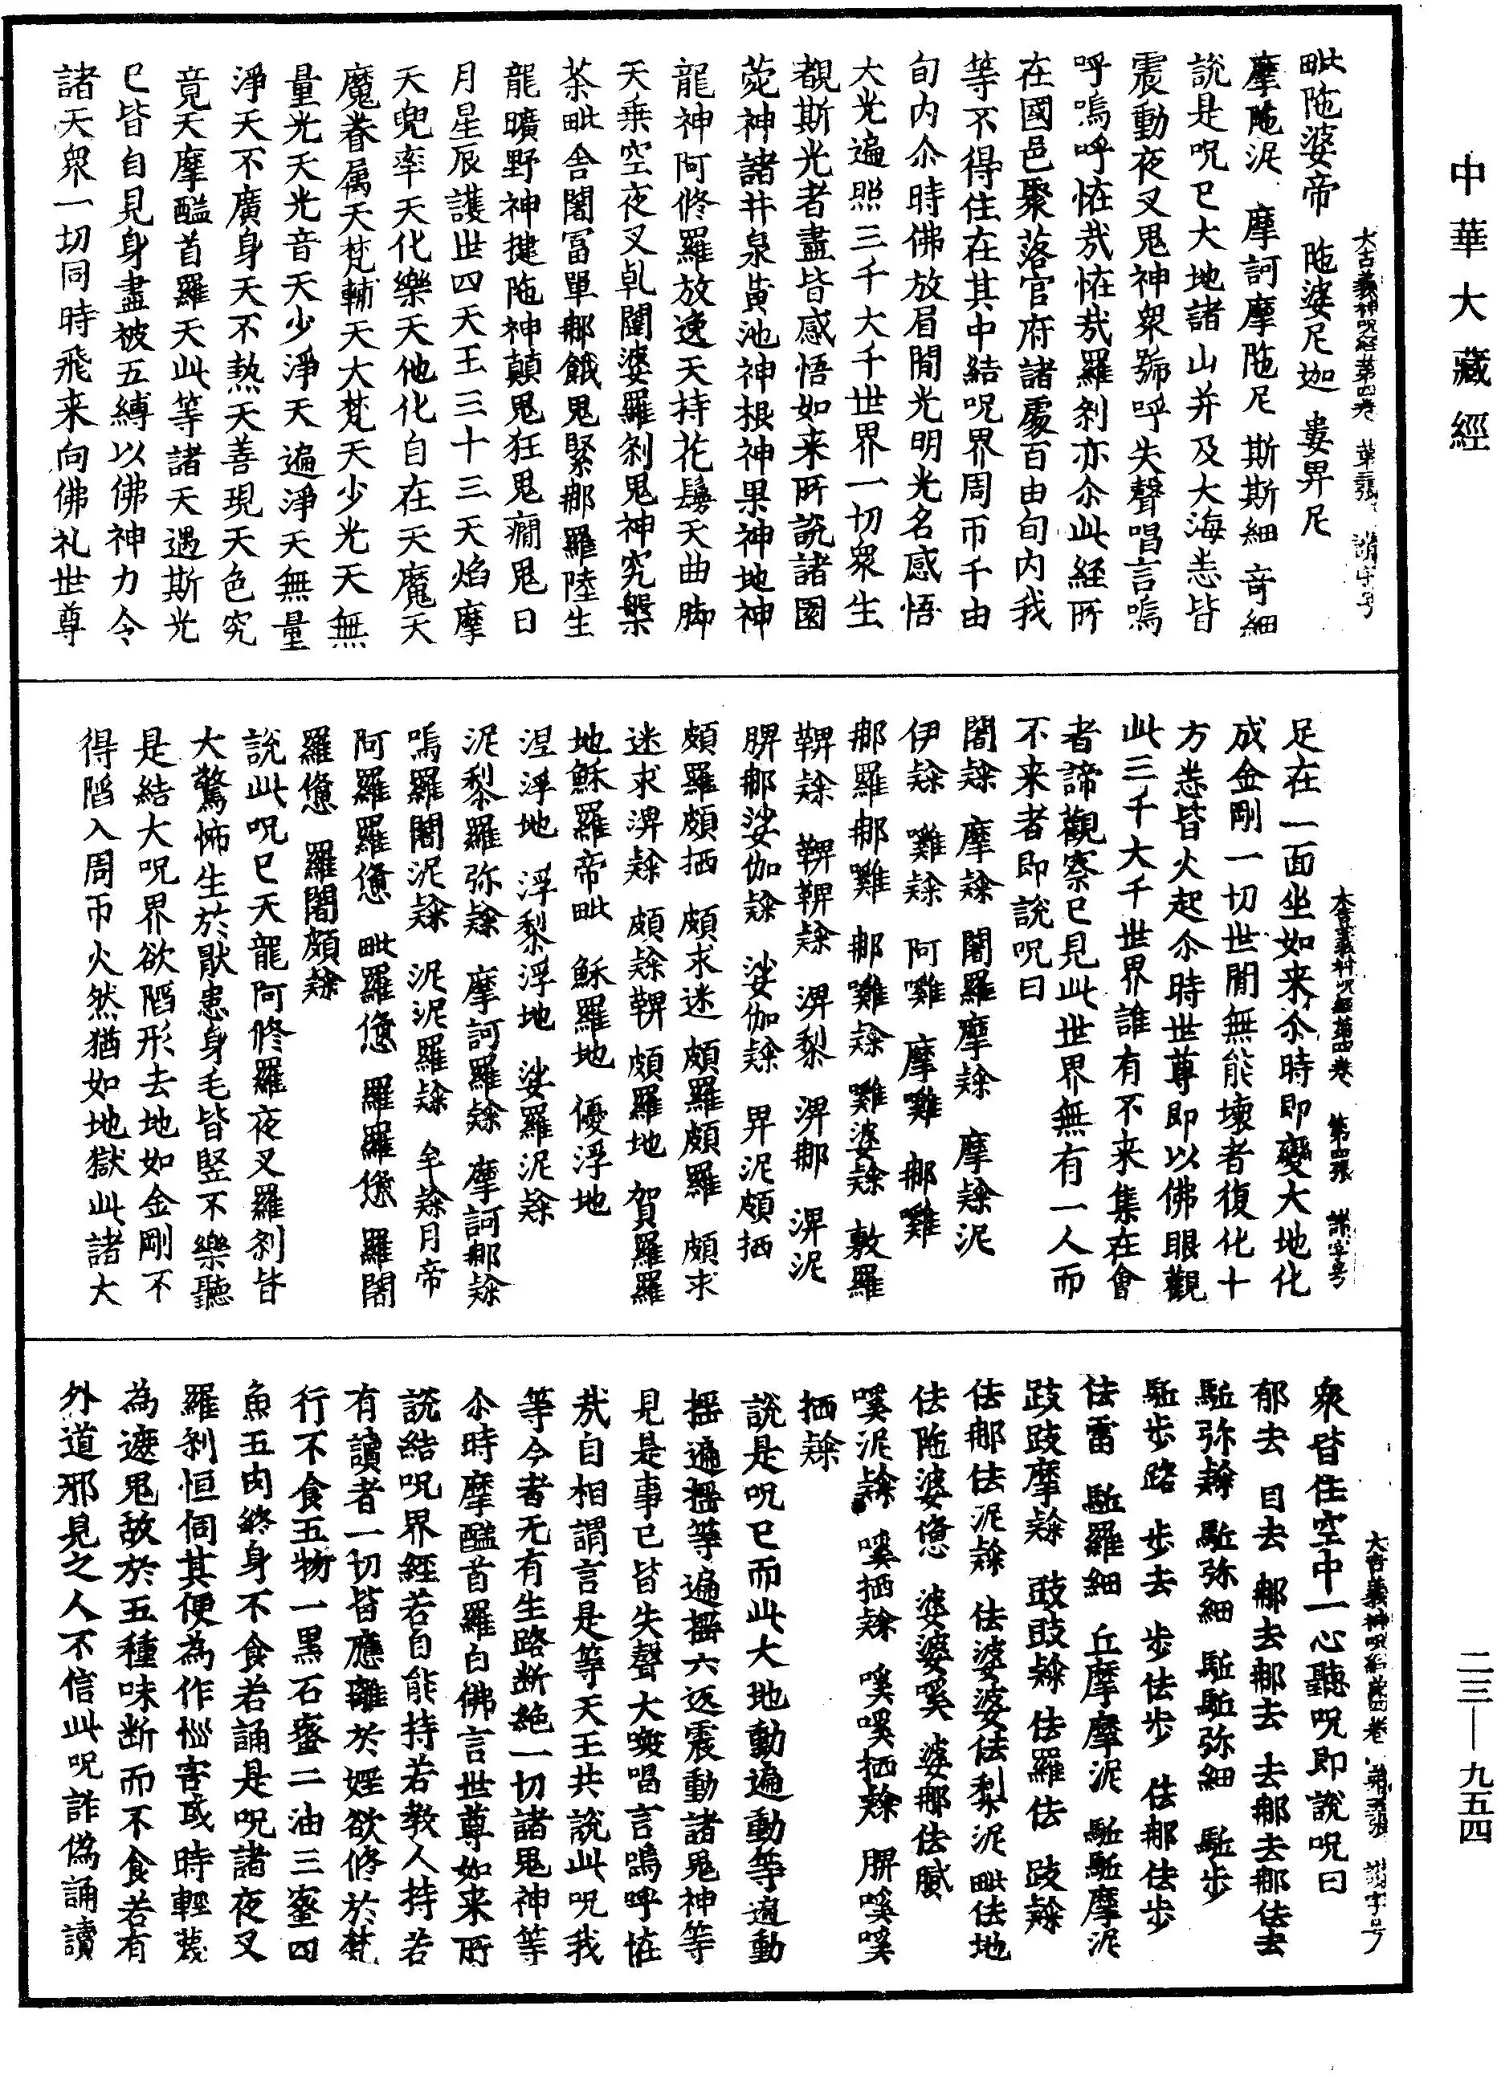 中華大藏經
毗陁婆帝　陁婆尼迦　婁畀尼
大吉義神呪經第四卷
摩陁泥　摩訶摩陁尼　斯斯細奇細
說是呪已大地諸山并及大海悉皆
震動夜叉鬼神衆號呼失聲唱言嗚
呼嗚呼怪㢤怪㢤羅剎亦尒此經所
在國邑聚落官府諸處百由旬内我
等不得住在其中結呪界周帀千由
旬内尒時佛放眉間光明光名感悟
大光遍照三千大千世界一切衆生
覩斯光者盡皆感悟如来所說諸園
苑神諸井泉黃池神根神果神地神
龍神阿修羅放逸天持花鬘天曲脚
天乗空夜叉乹闥婆羅剎鬼神究槃
荼毗舍闍富單那餓鬼緊那羅陸生
龍曠野神揵陁神顛鬼狂鬼癎鬼日
月星辰護世四天王三十三天焰摩
天兜率天化樂天他化自在天魔天
魔眷属天梵輔天大梵天少光天無
量光天光音天少淨天遍淨天無量
淨天不廣身天不熱天善現天色究
竟天摩醯首羅天此等諸天遇斯光
已皆自見身盡被五縛以佛神力令
諸天衆一切同時飛来向佛礼世尊
大吉義神呪經第四卷　第四張
足在一面坐如来尒時即變大地化
成金剛一切世間無能壞者復化十
方悉皆火起尒時世尊即以佛眼觀
此三千大千世界誰有不来集在會
者諦觀察已見此世界無有一人而
不来者即說呪曰
闍㘑　摩㘑　闍羅摩㘑　摩㘑泥
伊㘑　㘓㘑　阿㘓　摩㘓　那㘓
那羅那㘓　那㘓㘑　㘓婆㘑　敷羅
鞞㘑　鞞鞞㘑　渒黎　渒那　渒泥
脾那娑伽㘑　娑伽㘑　畀泥頗栖
頗羅頗栖　頗求迷　頗羅頗羅　頗求
迷求渒㘑　頗㘑鞞　頗羅地　賀羅羅
地穌羅帝毗　穌羅地　優浮地
涅浮地　浮黎浮地　娑羅泥㘑
泥黎羅弥㘑　摩訶羅㘑　摩訶那㘑
嗚羅闍泥㘑　泥泥羅㘑　牟㘑月帝
阿羅羅憊　毗羅憊　羅羅憊　羅闍
羅憊　羅闍頗㘑
說此呪已天龍阿修羅夜叉羅剎皆
大驚怖生於猒患身毛皆竪不樂聽
是結大呪界欲陷形去地如金剛不
得陷入周帀火然猶如地獄此諸大
大吉義神呪經第四卷
衆皆住空中一心聽呪即說呪曰
郁去　目去　那去那去　去那去那佉去
駈弥㘑　駈弥細　駈駈弥細　駈步
駈步路　步去　步佉步　佉那佉步
佉雷　駈羅細　丘摩摩泥　駈駈摩泥
跂跂摩㘑　跂跂㘑　佉羅佉　跂㘑
佉那佉泥㘑　佉婆婆佉梨泥　毗佉地
佉陁婆憊　婆婆嗘　婆那佉膩
嗘泥㘑　嗘栖㘑　嗘嗘栖㘑　脾嗘嗘
栖㘑
說是呪已而此大地動遍動等遍動
揺遍揺等遍揺六返震動諸鬼神等
見是事已皆失聲大喚唱言嗚呼怪
㢤自相謂言是等天王共說此呪我
等今者无有生路断絕一切諸鬼神等
尒時摩醯首羅白佛言世尊如来所
說結呪界經若自能持若教人持若
有讀者一切皆應離於婬欲修於梵
行不食五物一黒石蜜二油三蜜四
魚五肉終身不食若誦是呪諸夜叉
羅剎恒伺其便為作惱害或時輕蔑
為遮鬼故於五種味断而不食若有
外道邪見之人不信此呪詐偽誦讀
二三—九五四